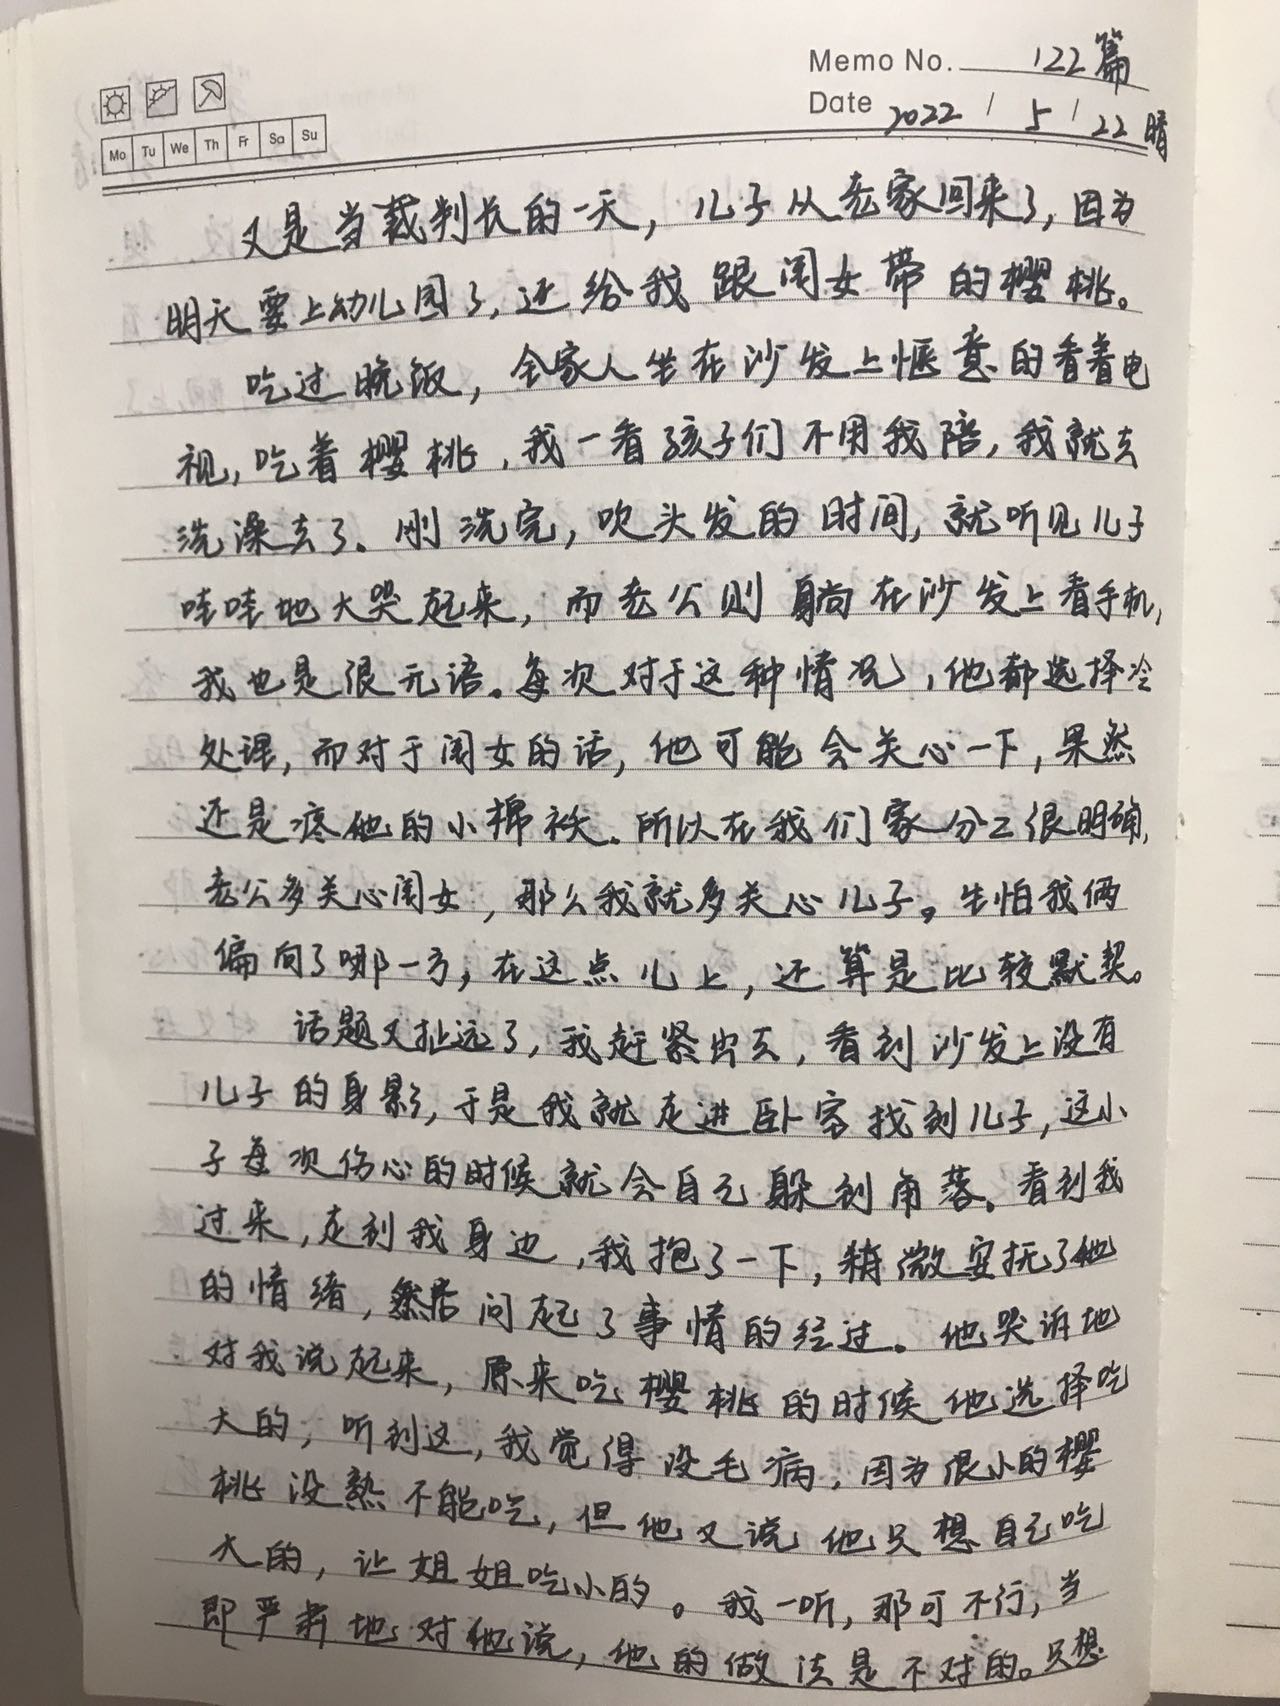 Memo No. 122篇
Mo Tu We Th Fr Sa Su
Date 2022 / 5 / 22 晴
又是当裁判长的一天，儿子从老家回来了，因为
明天要上幼儿园了，还给我跟闺女带的樱桃。
吃过晚饭，全家人坐在沙发上惬意的看着电
视，吃着樱桃，我一看孩子们不用我陪，我就去
洗澡去了。刚洗完，吹头发的时间，就听见儿子
哇哇地大哭起来，而老公则躺在沙发上看手机，
我也是很无语。每次对于这种情况，他都选择冷
处理，而对于闺女的话，他可能会关心一下，果然
还是疼他的小棉袄。所以在我们家分工很明确，
老公多关心闺女，那么我就多关心儿子。生怕我俩
偏向了哪一方，在这点儿上，还算是比较默契。
话题又扯远了，我赶紧出去，看到沙发上没有
儿子的身影，于是我就走进卧室找到儿子，这小
子每次伤心的时候就会自己躲到角落。看到我
过来，走到我身边，我抱了一下，稍微安抚了他
的情绪，然后问起了事情的经过。他哭诉地
对我说起来，原来吃樱桃的时候他选择吃
大的，听到这，我觉得没毛病，因为很小的樱
桃没熟不能吃，但他又说他只想自己吃
大的，让姐姐吃小的。我一听，那可不行，当
即严肃地对他说，他的做法是不对的。只想